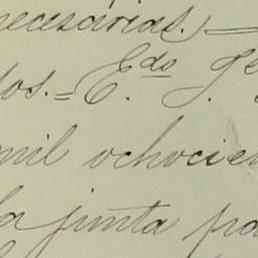 necesarias.) —
dos. = E.do Ge
mil ochocien
la junta pa